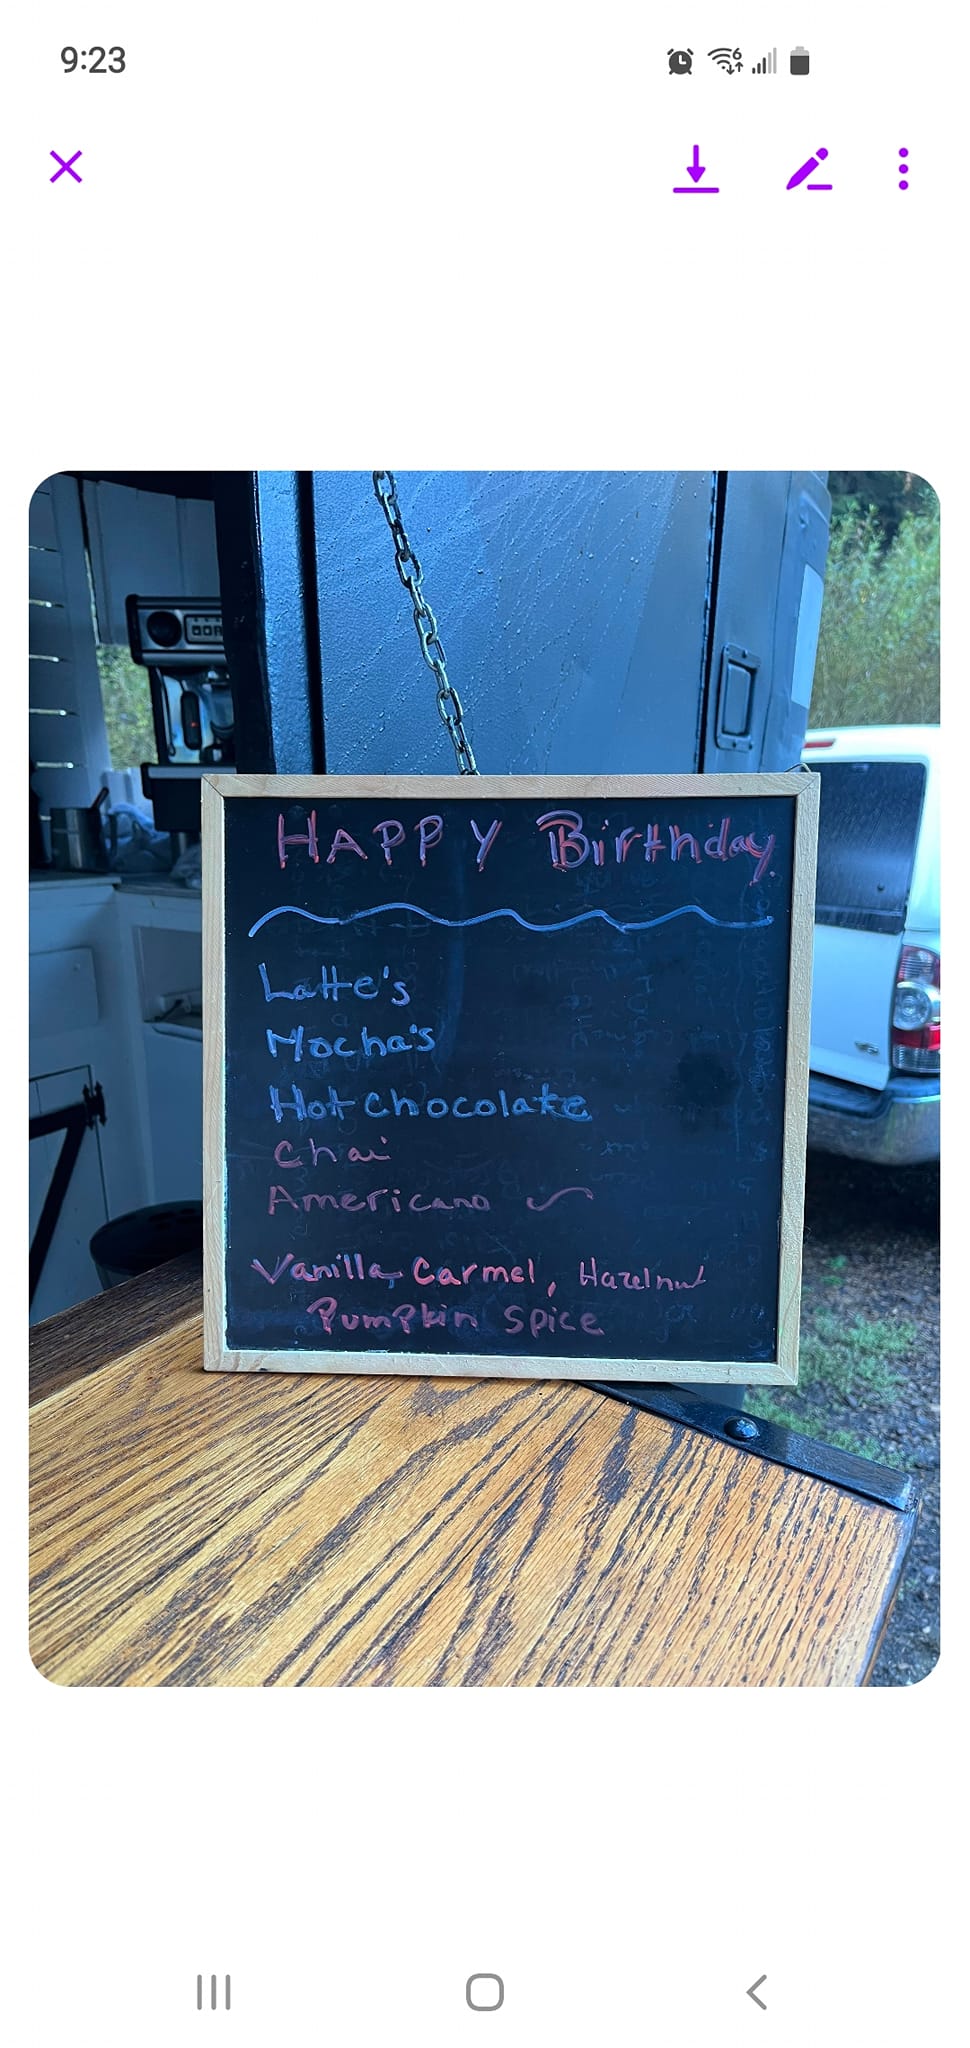 9:23
6
HAPPY Birthday
Latte's
Mocha's
Hot Chocolate
Chai
Americano
Vanilla, Carmel, Hazelnut
Pumpkin Spice
V6